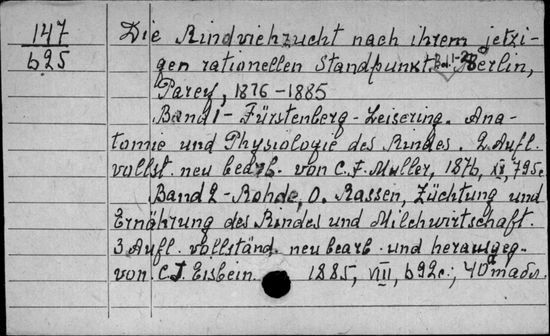 147
625
Die Rindviehzucht nach ihrem jetzi-
gen rationellen Standpunkt. Bd. 1-2 Berlin,
Parey, 1876-1885
Band 1 - Fürstenberg - Leisering. Ana-
tomie und Physiologie des Rindes. 2. Aufl.
vollst. neu bearb. von C. F. Müller, 1876, XII, 795 c.
Band 2 - Rohde, O. Rassen, Züchtung und
Ernährung des Rindes und Milchwirtschaft.
3 Aufl. vollständ. neu bearb. und herausgeg.
von C. J. Eisbein. 1885, VIII, 692 c.,